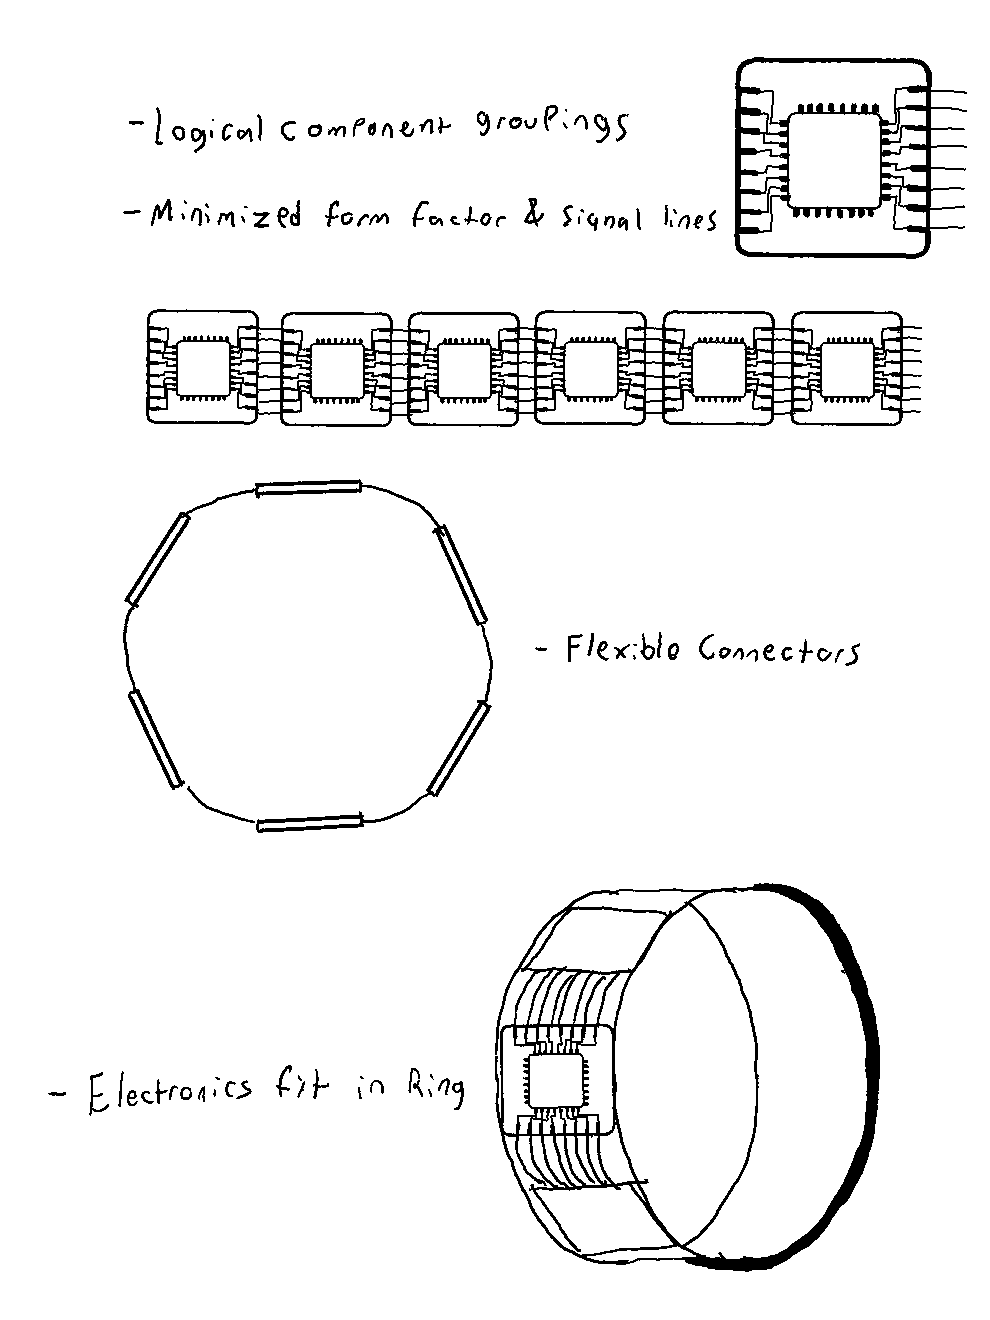 - Logical component groupings
- Minimized form factor & signal lines
- Flexible Connectors
- Electronics fit in Ring